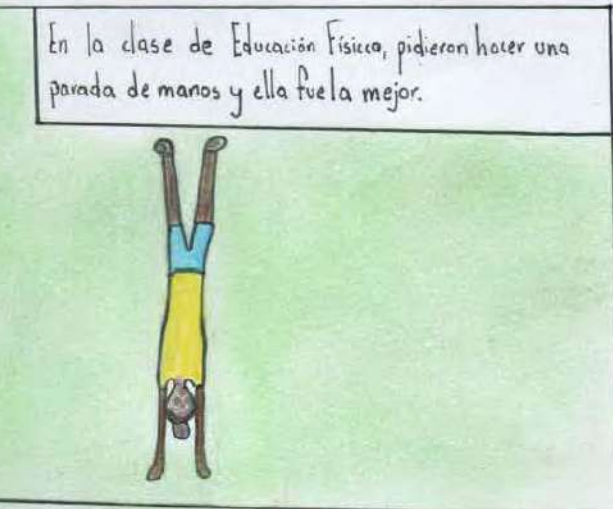 En la clase de Educación Física, pidieron hacer una
parada de manos y ella fue la mejor.